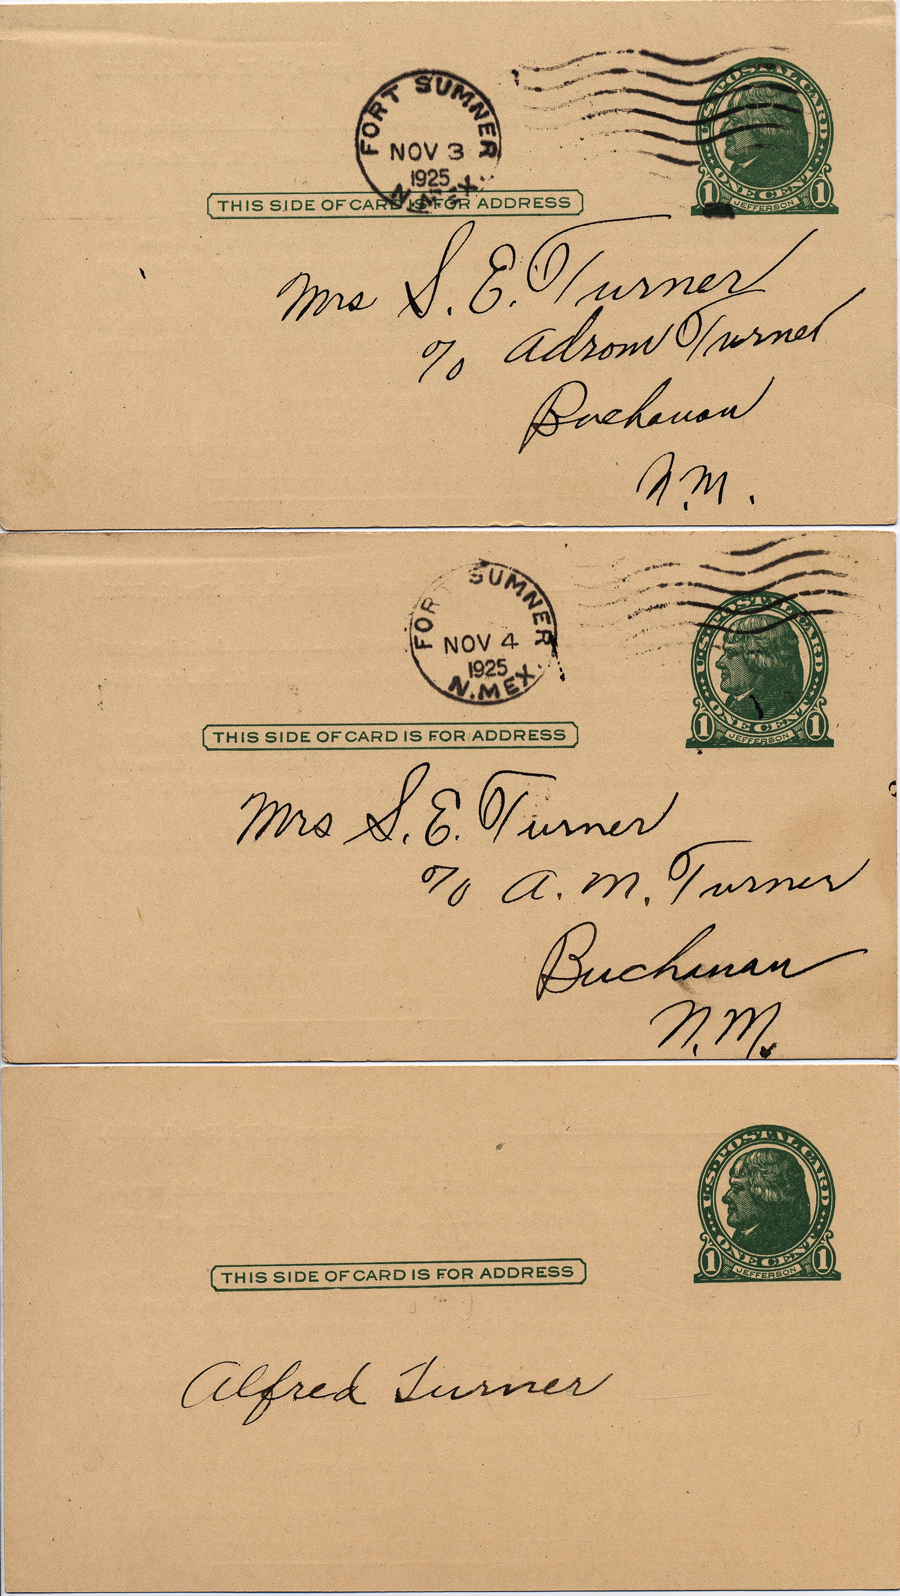 FORT SUMNER
NOV 3
1925
N. MEX.
U.S. POSTAL CARD
ONE CENT
1 JEFFERSON 1
THIS SIDE OF CARD IS FOR ADDRESS
Mrs S. E. Turner
c/o Adrom Turner
Buchanan
N.M.
FORT SUMNER
NOV 4
1925
N. MEX.
U.S. POSTAL CARD
ONE CENT
1 JEFFERSON 1
THIS SIDE OF CARD IS FOR ADDRESS
Mrs S. E. Turner
c/o A. M. Turner
Buchanan
N.M.
U.S. POSTAL CARD
ONE CENT
1 JEFFERSON 1
THIS SIDE OF CARD IS FOR ADDRESS
Alfred Turner